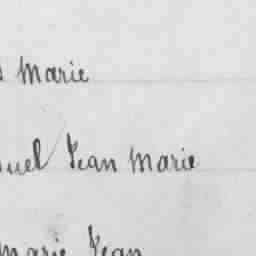 Marie
uel Jean Marie
Marie Jean